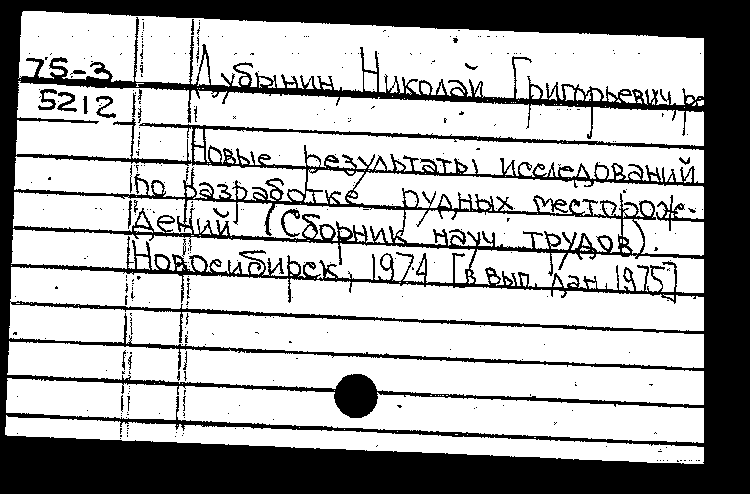 75-3
5212
Дубынин, Николай Григорьевич, ре
Новые результаты исследований
по разработке рудных месторож-
дений (Сборник науч. трудов).
Новосибирск, 1974 [в вып. дан. 1975]